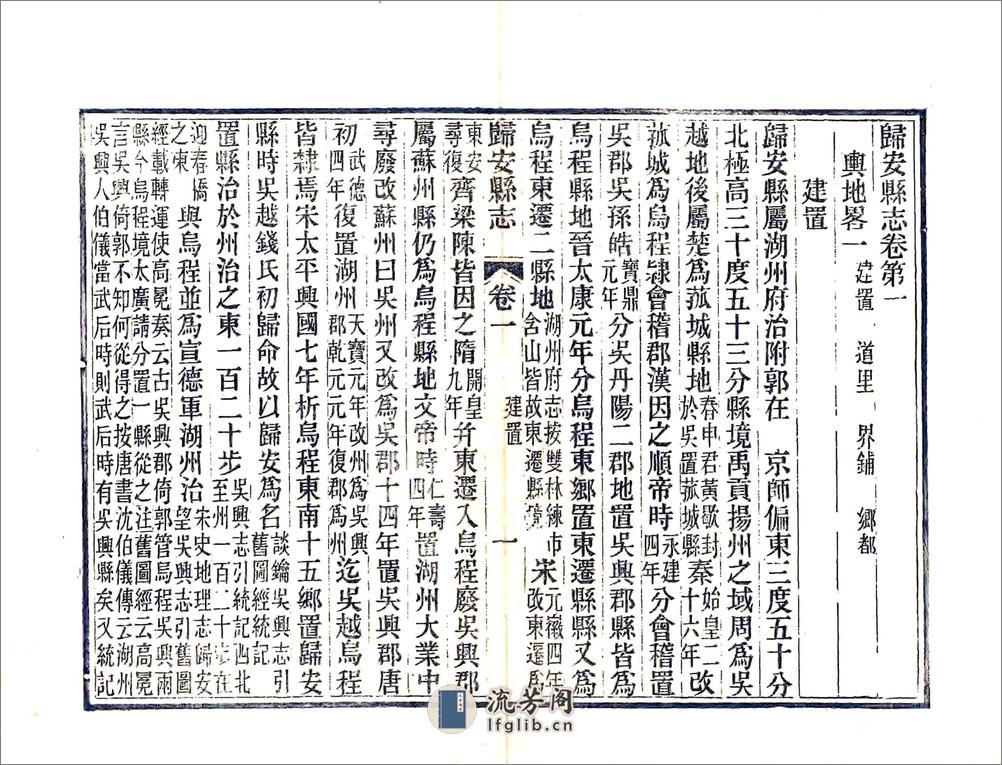 歸安縣志卷第一
輿地畧一 建置 道里 界鋪 鄉都
建置
歸安縣屬湖州府治附郭在 京師偏東三度五十分
北極高三十度五十三分縣境禹貢揚州之域周爲吳
越地後屬楚爲菰城縣地春申君黃歇封於吳置菰城縣秦始皇二十六年改
菰城爲烏程隸會稽郡漢因之順帝時永建四年分會稽置
吳郡吳孫皓寶鼎元年分吳丹陽二郡地置吳興郡縣皆爲
烏程縣地晉太康元年分烏程東鄉置東遷縣縣又爲
烏程東遷二縣地湖州府志按雙林練市含山皆故東遷縣境宋元徽四年改東遷爲
歸安縣志 卷一 建置 一
東安尋復齊梁陳皆因之隋開皇九年幷東遷入烏程廢吳興郡
屬蘇州縣仍爲烏程縣地文帝時仁壽四年置湖州大業中
尋廢改蘇州曰吳州又改爲吳郡十四年置吳興郡唐
初武德四年復置湖州天寶元年改州爲吳興郡乾元元年復郡爲州迄吳越烏程
皆隸焉宋太平興國七年析烏程東南十五鄉置歸安
縣時吳越錢氏初歸命故以歸安爲名談鑰吳興志引舊圖經統記
置縣治於州治之東一百二十步吳興志引統記西北至州一百二十步在
迎春橋之東與烏程並爲宣德軍湖州治宋史地理志歸安望吳興志引舊圖
經載轉運使高冕奏云古吳興郡倚郭管烏程吳興兩
縣今烏程境太廣請分置一縣從之注舊圖經云高冕
言吳興倚郭不知何從得之按唐書沈伯儀傳云湖州
吳興人伯儀當武后時則武后時有吳興縣矣又統記
流芳阁
lfglib.cn